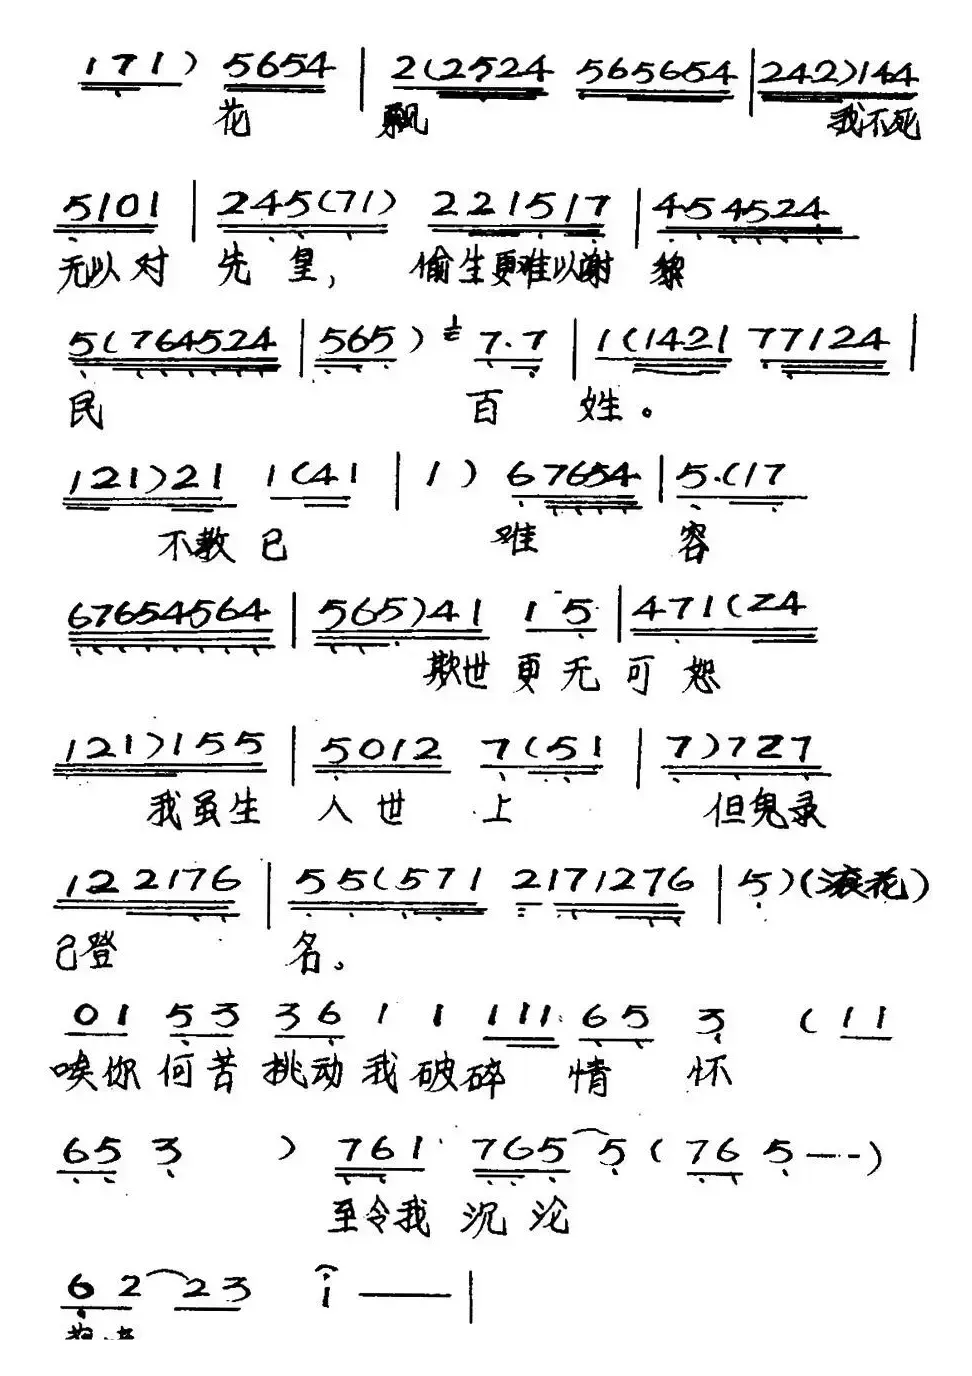 1 7 1 ) 5 6 5 4 | 2 ( 2 5 2 4 5 6 5 6 5 4 | 2 4 2 ) 1 4 4
花 飘 我不死
5 1 0 1 | 2 4 5 ( 7 1 ) 2 2 1 5 1 7 | 4 5 4 5 2 4
无以对 先 皇, 偷生更难以谢 黎
5 ( 7 6 4 5 2 4 | 5 6 5 ) 7 . 7 | 1 ( 1 4 2 1 7 7 1 2 4 |
民 百 姓。
1 2 1 ) 2 1 1 ( 4 1 | 1 ) 6 7 6 5 4 | 5 . ( 1 7
不教已 难 容
6 7 6 5 4 5 6 4 | 5 6 5 ) 4 1 1 5 | 4 7 1 ( 2 4
欺世更无可恕
1 2 1 ) 1 5 5 | 5 0 1 2 7 ( 5 1 | 7 ) 7 2 7
我虽生 人世 上 但鬼录
1 2 2 1 7 6 | 5 5 ( 5 7 1 2 1 7 1 2 7 6 | 5 ) ( 滚花 )
己登 名。
0 1 5 3 3 6 1 1 1 1 1 6 5 3 ( 1 1
唉你何苦挑动我破碎 情 怀
6 5 3 ) 7 6 1 7 6 5 5 ( 7 6 5 — - - )
至令我 沉 沦
6 2 2 3 1 — |